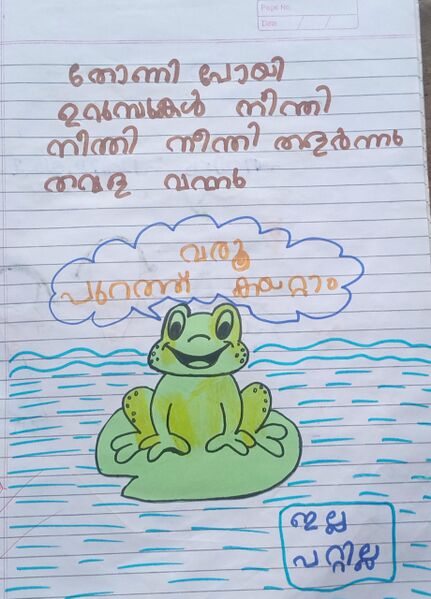 Page No.
Date
തോണി പോയി
ഉറുമ്പുകൾ നീന്തി
നീന്തി നീന്തി തളർന്നു
തവള വന്നു
വരൂ
പുറത്ത് കയറ്റാം
ഇല്ല
പറ്റില്ല